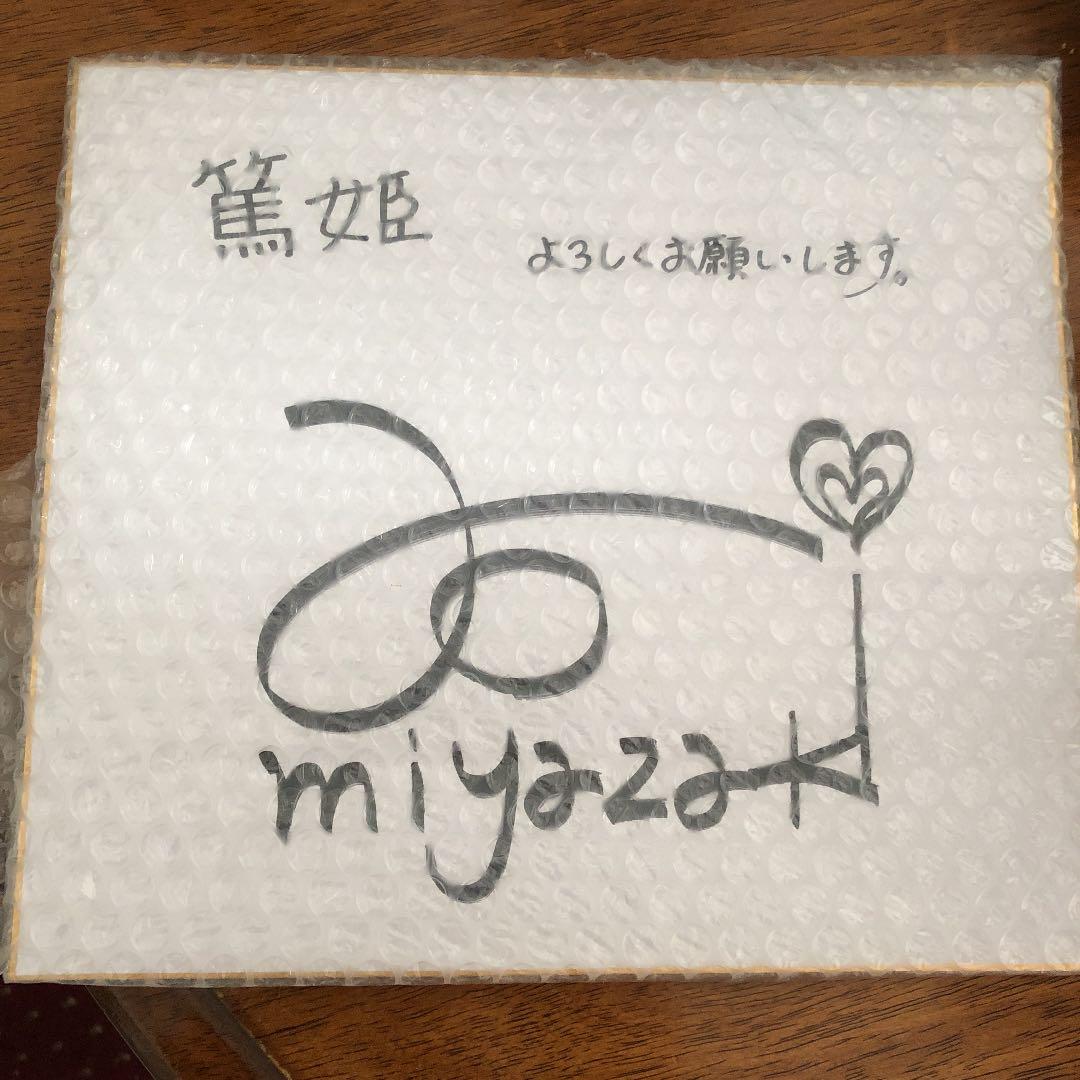 篤姫
よろしくお願いします。
miyazaki